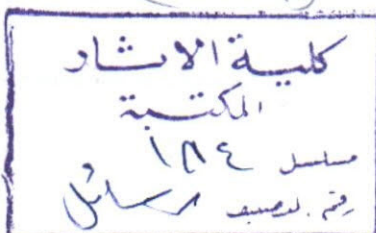 كلية الاثار
المكتبة
مسلسل ١٨٤
رقم التصنيف رسائل